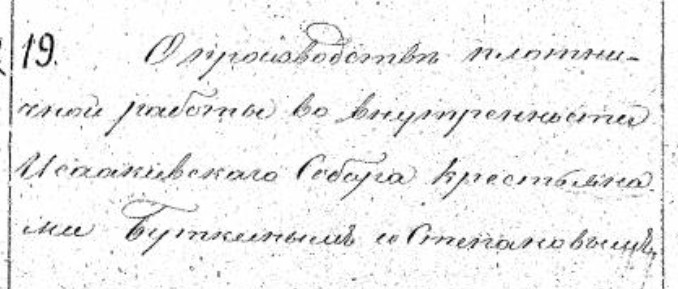 19. О производствѣ плотни-
чной работы во внутренности
Исаакiевскаго Собора крестьяна-
ми Буткинымъ и Степановымъ,